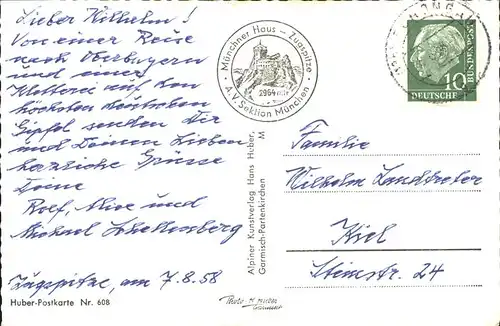 Lieber Wilhelm!
Von einer Reise
nach Oberbayern
und einer
Kletterei auf den
höchsten deutschen
Gipfel senden Dir
und Deinen Lieben
herzliche Grüsse
Deine
Rolf, Alice und
Michael Schellenberg
Zugspitze, am 7.8.58
Huber-Postkarte Nr. 608
Münchner Haus - Zugspitze
2964 m
A.V. Sektion München
Alpiner Kunstverlag Hans Huber,
Garmisch-Partenkirchen
M
Photo H. Huber
10
DEUTSCHE
BUNDESPOST
Familie
Wilhelm
Kiel
24